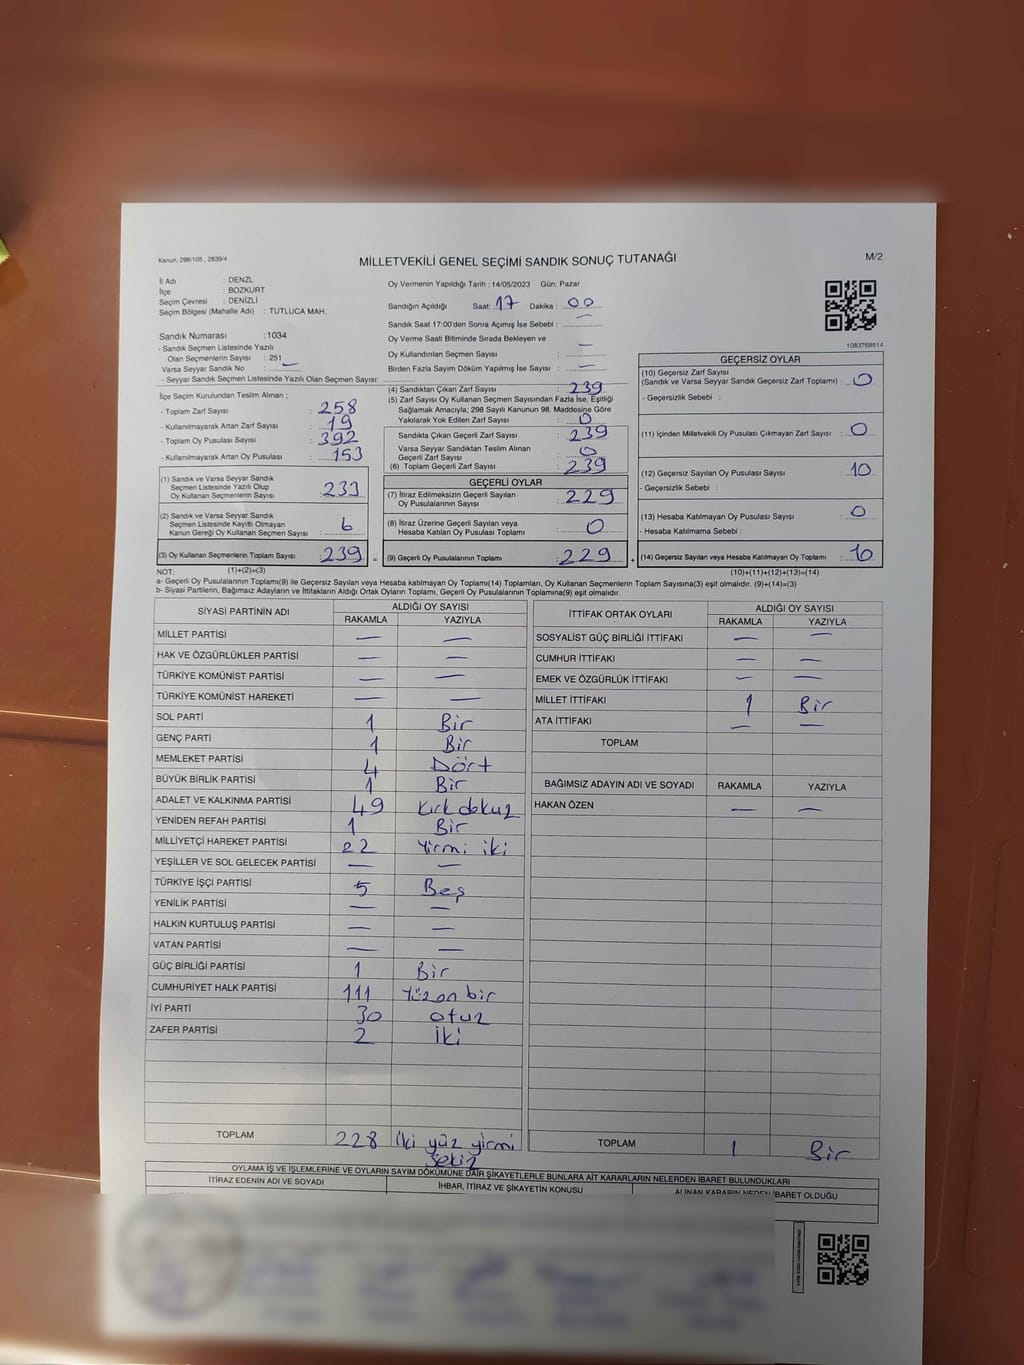 Kanun, 298/105 , 2839/4
MİLLETVEKİLİ GENEL SEÇİMİ SANDIK SONUÇ TUTANAĞI
M/2
İl Adı : DENZL
İlçe : BOZKURT
Seçim Çevresi : DENİZLİ
Seçim Bölgesi (Mahalle Adı) : TUTLUCA MAH.
Sandık Numarası :1034
- Sandık Seçmen Listesinde Yazılı
Olan Seçmenlerin Sayısı : 251
Varsa Seyyar Sandık No : —
- Seyyar Sandık Seçmen Listesinde Yazılı Olan Seçmen Sayısı:
Oy Vermenin Yapıldığı Tarih : 14/05/2023 Gün: Pazar
Sandığın Açıldığı Saat: 17 Dakika : 00
Sandık Saat 17:00'den Sonra Açımış İse Sebebi : —
Oy Verme Saati Bitiminde Sırada Bekleyen ve
Oy Kullandırılan Seçmen Sayısı : —
Birden Fazla Sayım Döküm Yapılmış İse Sayısı : —
1083768614
İlçe Seçim Kurulundan Teslim Alınan ;
- Toplam Zarf Sayısı : 258
- Kullanılmayarak Artan Zarf Sayısı : 19
- Toplam Oy Pusulası Sayısı : 392
- Kullanılmayarak Artan Oy Pusulası : 153
(1) Sandık ve Varsa Seyyar Sandık
Seçmen Listesinde Yazılı Olup
Oy Kullanan Seçmenlerin Sayısı : 233
(2) Sandık ve Varsa Seyyar Sandık
Seçmen Listesinde Kayıtlı Olmayan
Kanun Gereği Oy Kullanan Seçmen Sayısı : 6
(3) Oy Kullanan Seçmenlerin Toplam Sayısı : 239 =
(4) Sandıktan Çıkan Zarf Sayısı : 239
(5) Zarf Sayısı Oy Kullanan Seçmen Sayısından Fazla İse, Eşitliği
Sağlamak Amacıyla; 298 Sayılı Kanunun 98. Maddesine Göre
Yakılarak Yok Edilen Zarf Sayısı : 0
Sandıkta Çıkan Geçerli Zarf Sayısı : 239
Varsa Seyyar Sandıktan Teslim Alınan
Geçerli Zarf Sayısı : 0
(6) Toplam Geçerli Zarf Sayısı : 239
GEÇERLİ OYLAR
(7) İtiraz Edilmeksizin Geçerli Sayılan
Oy Pusulalarının Sayısı : 229
(8) İtiraz Üzerine Geçerli Sayılan veya
Hesaba Katılan Oy Pusulası Toplamı : 0
(9) Geçerli Oy Pusulalarının Toplamı : 229 +
GEÇERSİZ OYLAR
(10) Geçersiz Zarf Sayısı
(Sandık ve Varsa Seyyar Sandık Geçersiz Zarf Toplamı) : 0
- Geçersizlik Sebebi :
(11) İçinden Milletvekili Oy Pusulası Çıkmayan Zarf Sayısı : 0
(12) Geçersiz Sayılan Oy Pusulası Sayısı : 10
- Geçersizlik Sebebi :
(13) Hesaba Katılmayan Oy Pusulası Sayısı : 0
- Hesaba Katılmama Sebebi :
(14) Geçersiz Sayılan veya Hesaba Katılmayan Oy Toplamı : 10
NOT: (1)+(2)=(3) (10)+(11)+(12)+(13)=(14)
a- Geçerli Oy Pusulalarının Toplamı(9) ile Geçersiz Sayılan veya Hesaba katılmayan Oy Toplamı(14) Toplamları, Oy Kullanan Seçmenlerin Toplam Sayısına(3) eşit olmalıdır. (9)+(14)=(3)
b- Siyasi Partilerin, Bağımsız Adayların ve İttifakların Aldığı Ortak Oyların Toplamı, Geçerli Oy Pusulalarının Toplamına(9) eşit olmalıdır.
SİYASİ PARTİNİN ADI ALDIĞI OY SAYISI
RAKAMLA YAZIYLA
MİLLET PARTİSİ — —
HAK VE ÖZGÜRLÜKLER PARTİSİ — —
TÜRKİYE KOMÜNİST PARTİSİ — —
TÜRKİYE KOMÜNİST HAREKETİ — —
SOL PARTİ 1 Bir
GENÇ PARTİ 1 Bir
MEMLEKET PARTİSİ 4 Dört
BÜYÜK BİRLİK PARTİSİ 1 Bir
ADALET VE KALKINMA PARTİSİ 49 Kırk dokuz
YENİDEN REFAH PARTİSİ 1 Bir
MİLLİYETÇİ HAREKET PARTİSİ 22 Yirmi iki
YEŞİLLER VE SOL GELECEK PARTİSİ — —
TÜRKİYE İŞÇİ PARTİSİ 5 Beş
YENİLİK PARTİSİ — —
HALKIN KURTULUŞ PARTİSİ — —
VATAN PARTİSİ — —
GÜÇ BİRLİĞİ PARTİSİ 1 Bir
CUMHURİYET HALK PARTİSİ 111 Yüz on bir
İYİ PARTİ 30 otuz
ZAFER PARTİSİ 2 İki
TOPLAM 228 İki yüz yirmi
Sekiz
İTTİFAK ORTAK OYLARI ALDIĞI OY SAYISI
RAKAMLA YAZIYLA
SOSYALİST GÜÇ BİRLİĞİ İTTİFAKI — —
CUMHUR İTTİFAKI — —
EMEK VE ÖZGÜRLÜK İTTİFAKI — —
MİLLET İTTİFAKI 1 Bir
ATA İTTİFAKI — —
TOPLAM
BAĞIMSIZ ADAYIN ADI VE SOYADI RAKAMLA YAZIYLA
HAKAN ÖZEN — —
TOPLAM 1 Bir
OYLAMA İŞ VE İŞLEMLERİNE VE OYLARIN SAYIM DÖKÜMÜNE DAİR ŞİKAYETLERLE BUNLARA AİT KARARLARIN NELERDEN İBARET BULUNDUKLARI
İTİRAZ EDENİN ADI VE SOYADI İHBAR, İTİRAZ VE ŞİKAYETİN KONUSU ALINAN KARARIN NEDEN İBARET OLDUĞU